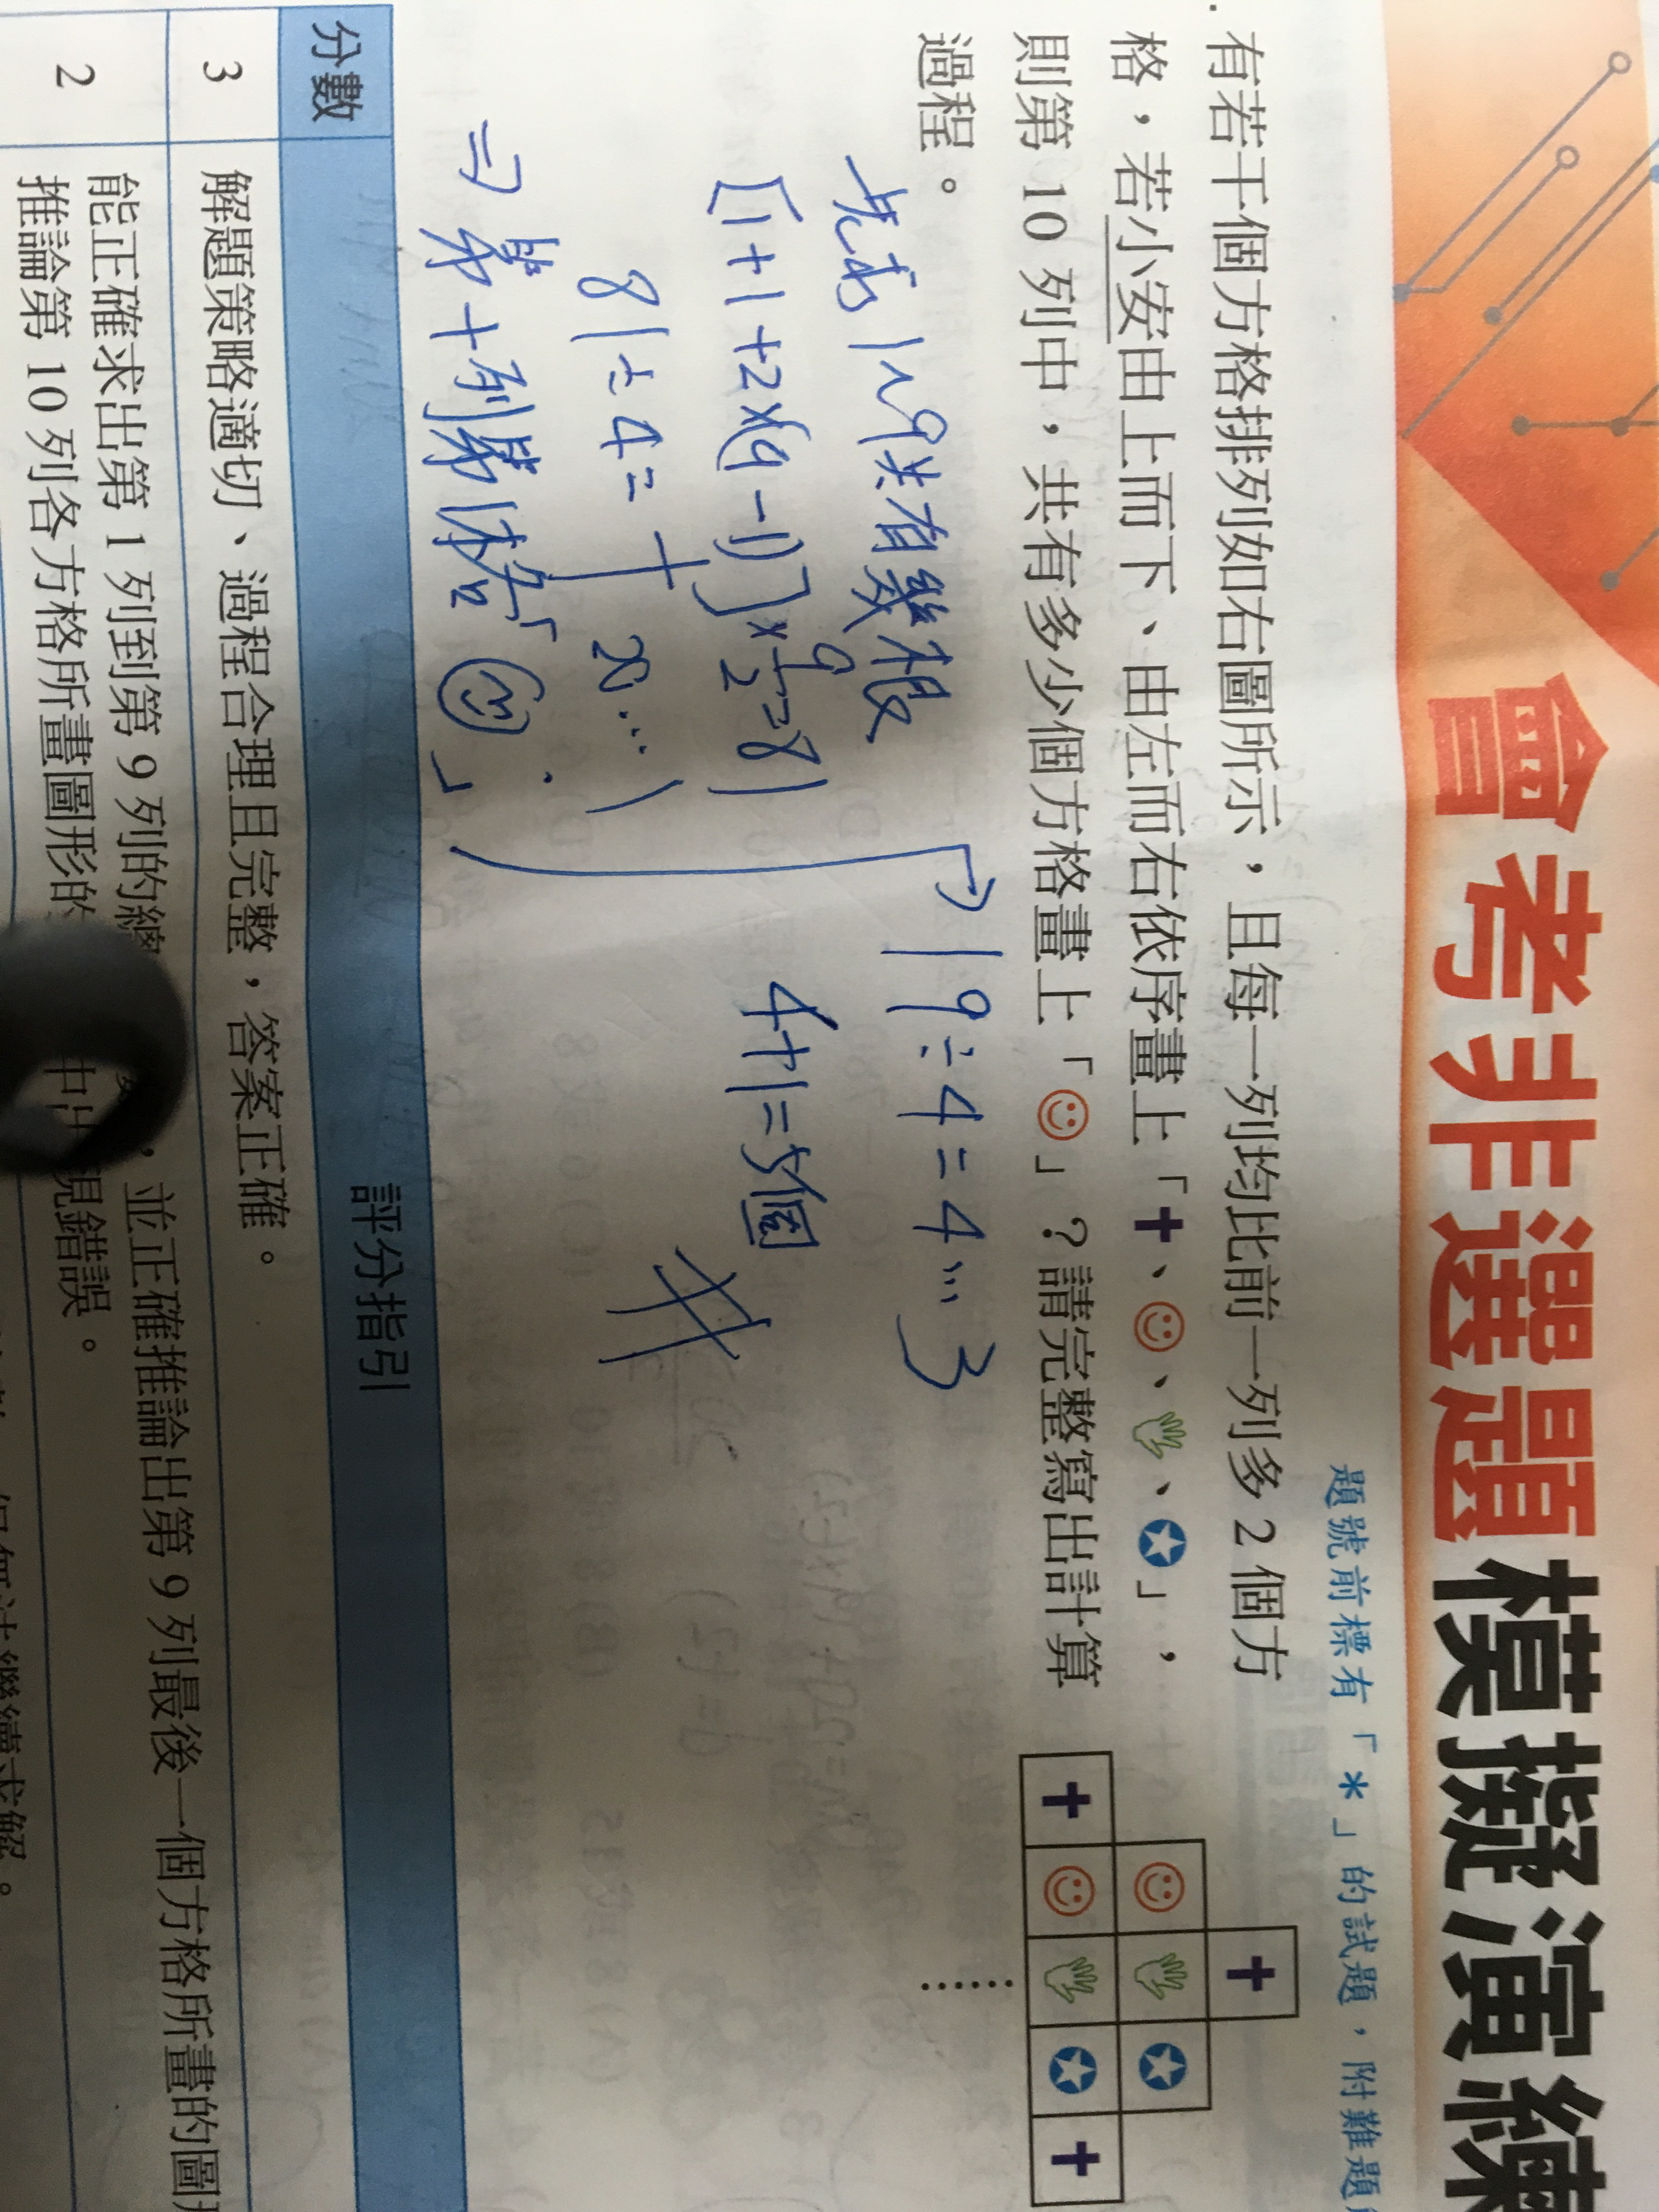 會考非選題模擬演練
題號前標有「*」的試題，附難題
有若干個方格排列如右圖所示，且每一列均比前一列多 2 個方
格，若小安由上而下、由左而右依序畫上「✚、☺、、✪」，
則第 10 列中，共有多少個方格畫上「☺」？請完整寫出計算
過程。
先求1~9共有幾根
[1+1+2×(9-1)]×9/2=81
81÷4=20…1
⇒第十列第1格為「☺」
19÷4=4…3
4+1=5個
分數 評分指引
3 解題策略適切、過程合理且完整，答案正確。
2 能正確求出第 1 列到第 9 列的總，並正確推論出第 9 列最後一個方格所畫的圖
推論第 10 列各方格所畫圖形的中出現錯誤。